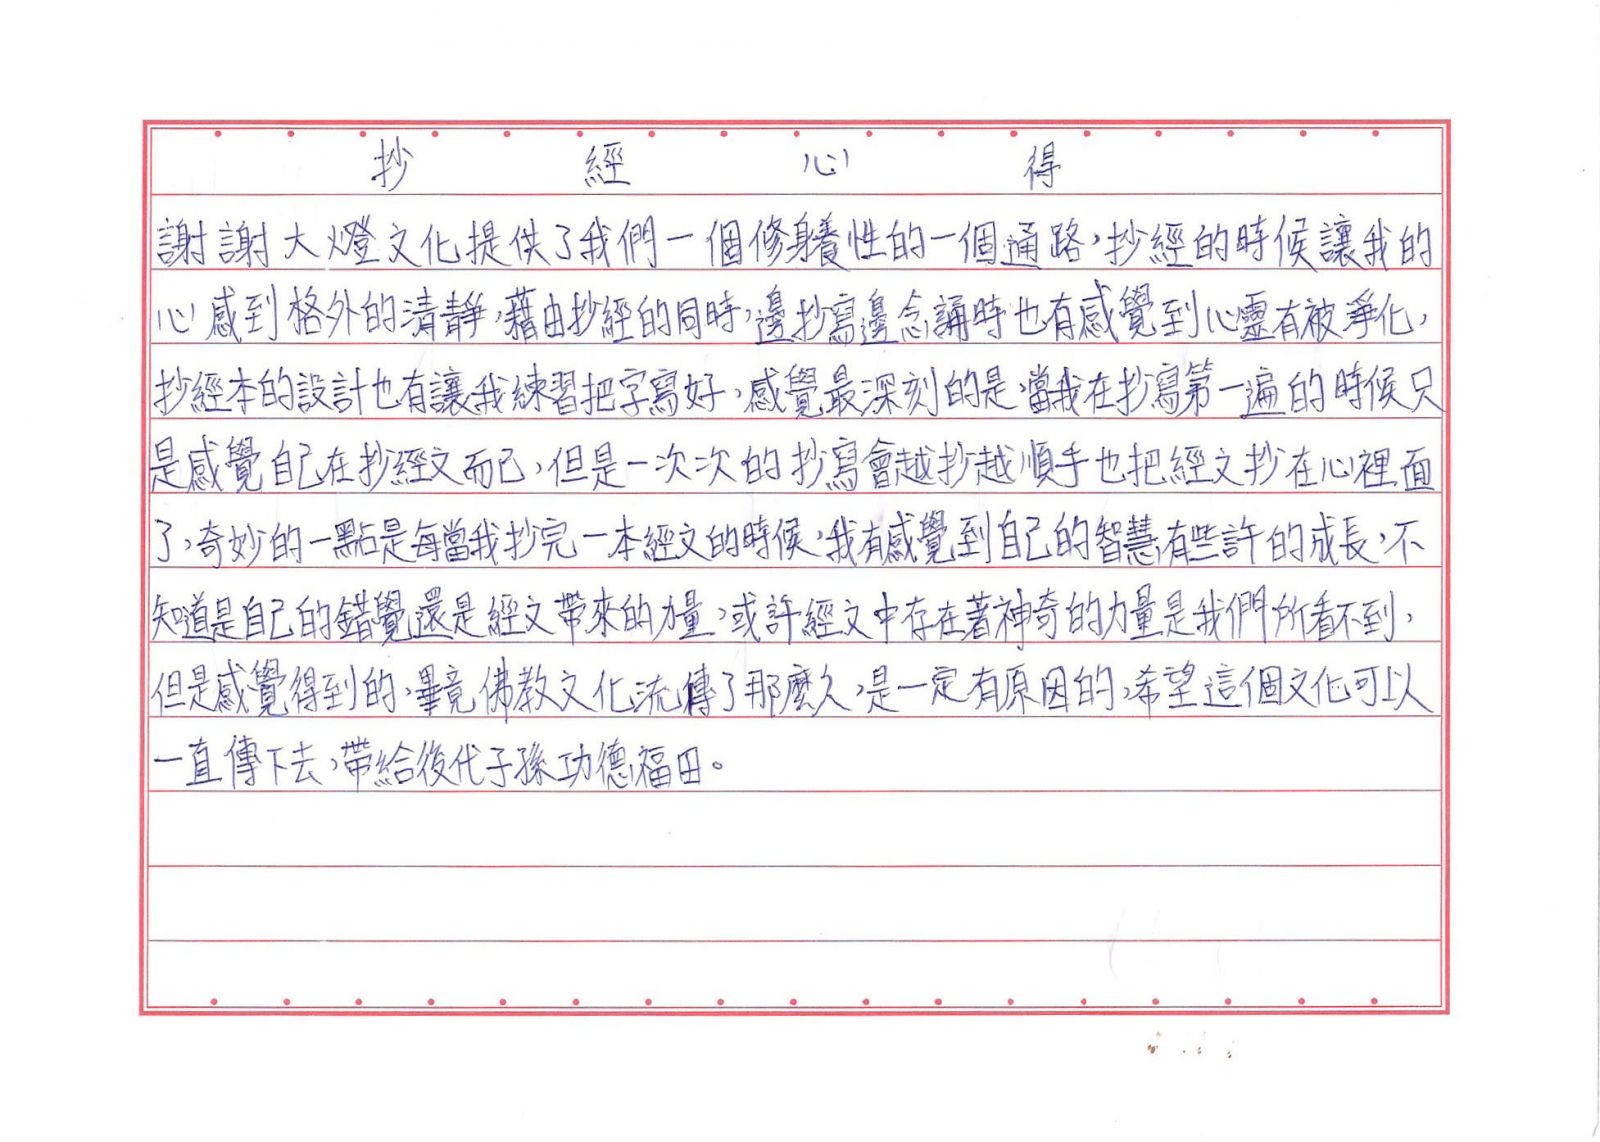 抄經心得
謝謝大燈文化提供了我們一個修身養性的一個通路，抄經的時候讓我的
心感到格外的清靜，藉由抄經的同時，邊抄寫邊念誦時也有感覺到心靈有被淨化，
抄經本的設計也有讓我練習把字寫好，感覺最深刻的是，當我在抄寫第一遍的時候只
是感覺自己在抄經文而已，但是一次次的抄寫會越抄越順手也把經文抄在心裡面
了，奇妙的一點是每當我抄完一本經文的時候，我有感覺到自己的智慧有些許的成長，不
知道是自己的錯覺還是經文帶來的力量，或許經文中存在著神奇的力量是我們所看不到，
但是感覺得到的，畢竟佛教文化流傳了那麼久，是一定有原因的，希望這個文化可以
一直傳下去，帶給後代子孫功德福田。